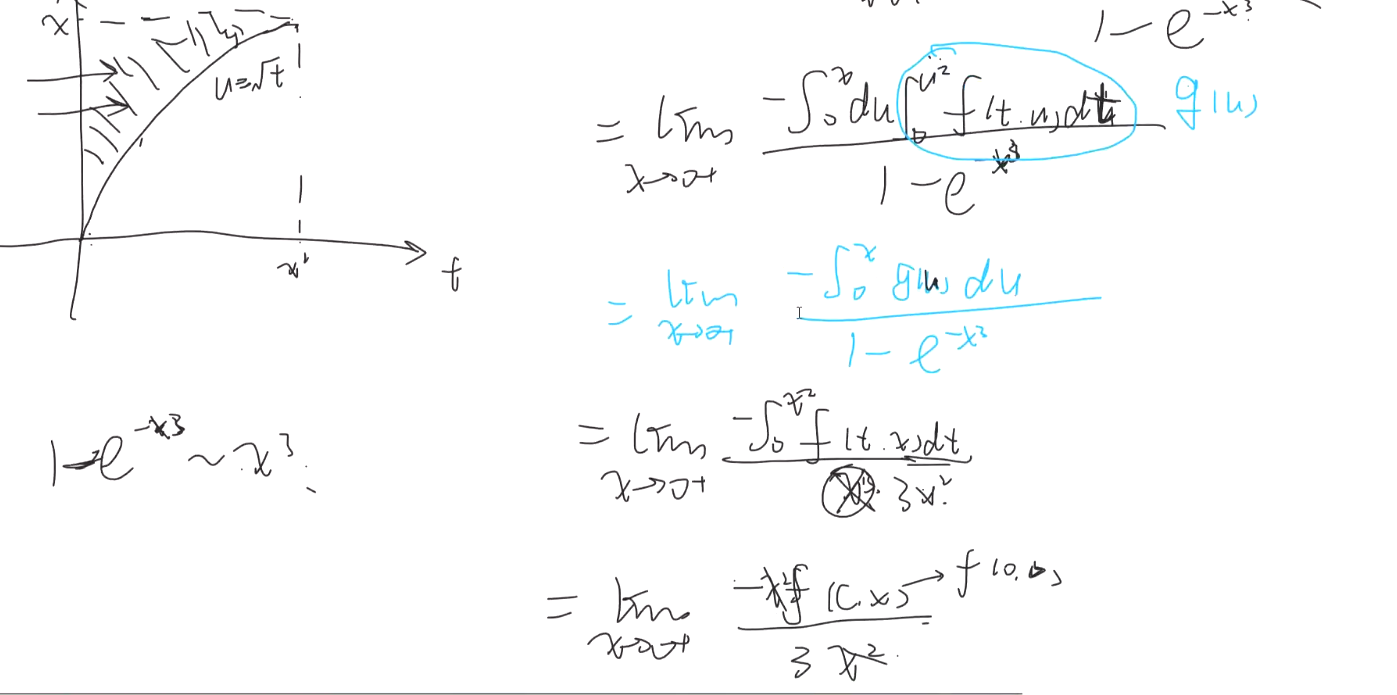 x
u=√t
x²
t
1-e^{-x³} ~ x³.
1-e^{-x³}
= lim_{x→0+} \frac{-∫_0^x du ∫_0^{u²} f(t,u)dt}{1-e^{-x³}} g(u)
= lim_{x→0+} \frac{-∫_0^x g(u) du}{1-e^{-x³}}
= lim_{x→0+} \frac{-∫_0^{x²} f(t,x)dt}{3x²}
= lim_{x→0+} \frac{-x²f(c,x)}{3x²} → f(0,0)